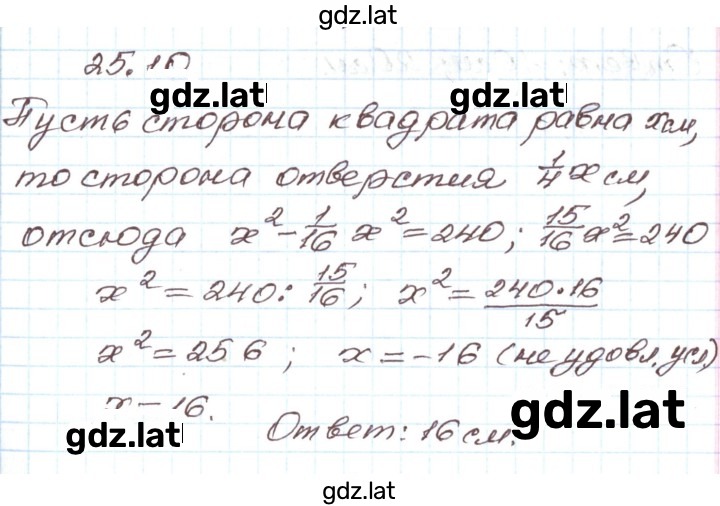 gdz.lat
25.
gdz.lat gdz.lat
Пусть сторона квадрата равна x см,
то сторона отверстия 1/4 x см,
отсюда x² - 1/16 x² = 240; 15/16 x² = 240
x² = 240 : 15/16; x² = 240·16/15
x² = 256; x = -16 (не удовл. усл)
x = 16.
gdz.lat
gdz.lat Ответ: 16 см.
gdz.lat